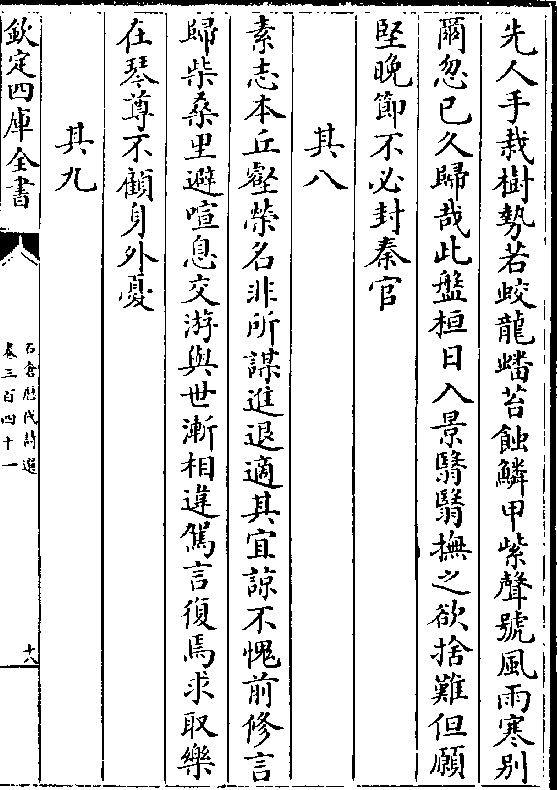 先人手栽樹勢若蛟龍蟠苔蝕鱗甲紫聲號風雨寒别
爾忽已久歸哉此盤桓日入景翳翳撫之欲捨難但願
堅晚節不必封秦官
其八
素志本丘壑榮名非所謀進退適其宜諒不愧前修言
歸柴桑里避喧息交游與世漸相違駕言復焉求取樂
在琴尊不顧身外憂
其九
欽定四庫全書
石倉歷代詩選
卷三百四十一
十八